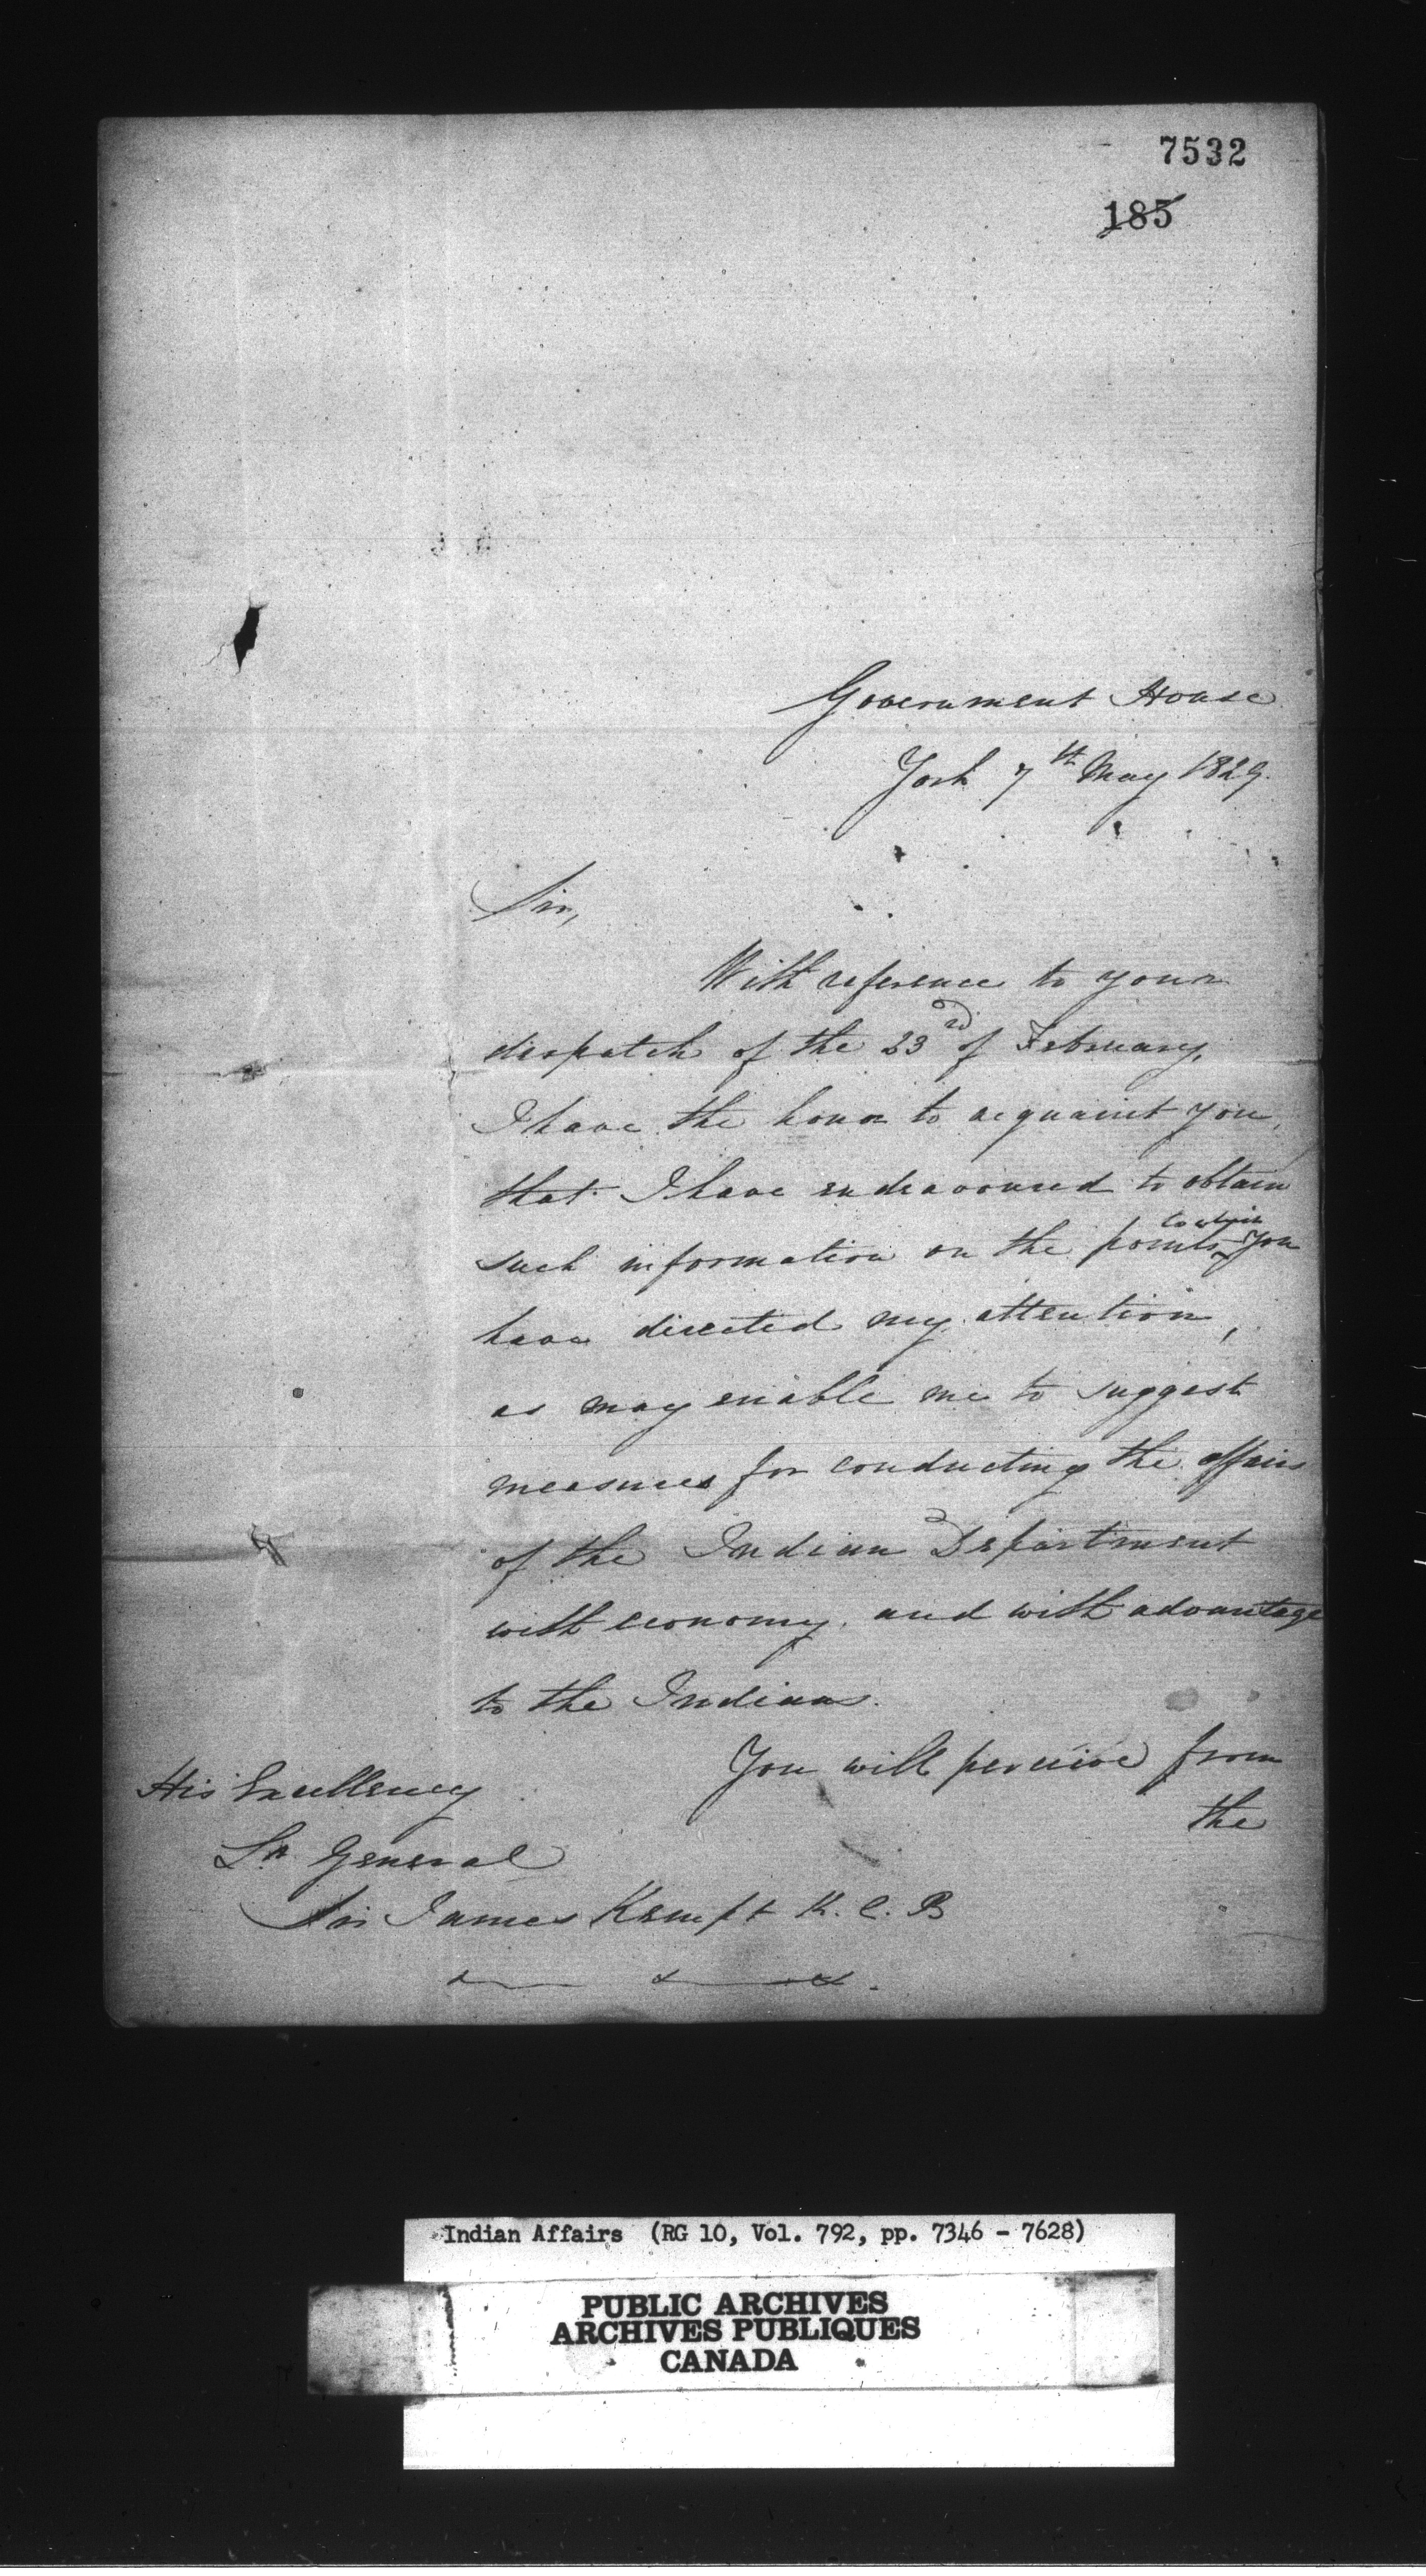 7532
185
Government House
York 7th May 1829.
Sir,
With reference to your
dispatch of the 23rd of February,
I have the honor to acquaint you,
that I have endeavoured to obtain
to which
such information on the points you
have directed my attention,
as may enable me to suggest
measures for conducting the affairs
of the Indian Department
with economy, and with advantage
to the Indians.
You will perceive from
the
His Excellency
Lt. General
Sir James Kempt K.C.B
Indian Affairs (RG 10, Vol. 792, pp. 7346 - 7628)
PUBLIC ARCHIVES
ARCHIVES PUBLIQUES
CANADA